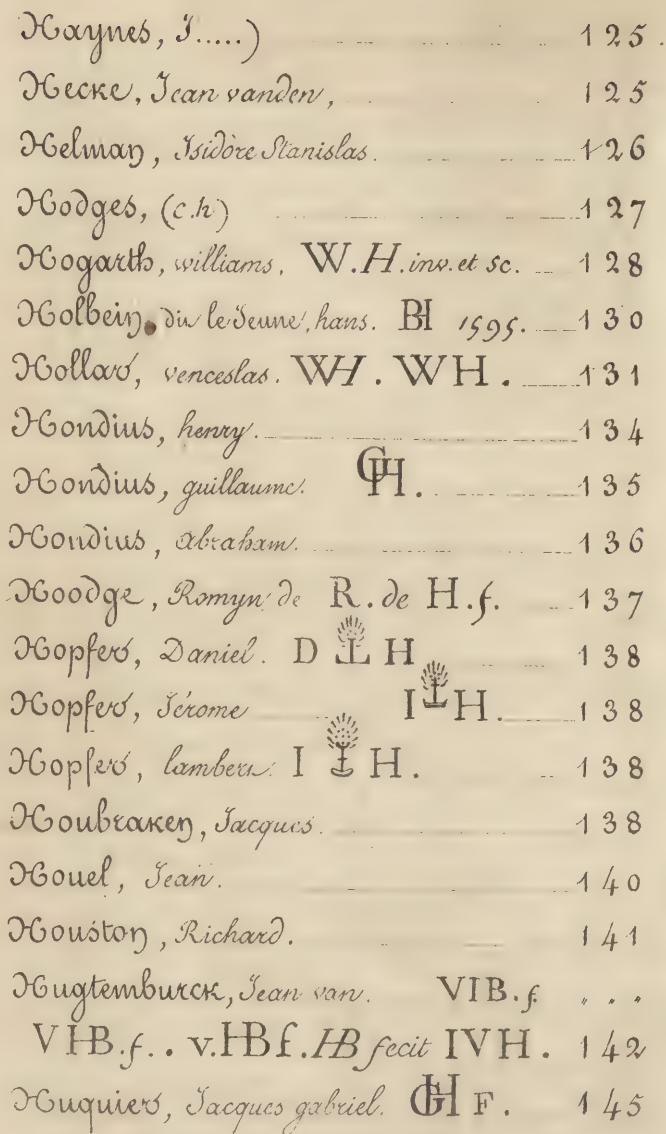 Haynes, J.....) 125.
Hecke, Jean vanden, 125
Helman, Isidore Stanislas. 126
Hodges, (c.h) 127
Hogarth, williams. W.H. inv. et sc. 128
Holbein, dit le Jeune, hans. BH 1595. 130
Hollard, venceslas. WH. WH. 131
Hondius, henry. 134
Hondius, guillaume. GH. 135
Hondius, abraham. 136
Hoodge, Romyn de R. de H. f. 137
Hopferd, Daniel. D H 138
Hopferd, Jérome I H. 138
Hopferd, lambert. I H. 138
Houbraken, Jacques. 138
Houel, Jean. 140
Houston, Richard. 141
Hugtemburck, Jean van. VIB. f. . . .
VHB. f. . v. HB f. HB fecit IVH. 142
Huquierd, Jacques gabriel. GH F. 145